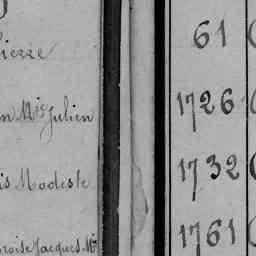 61
ierre
1726
n Mie Julien
1732
is Modeste
1761
roise Jacques Mie